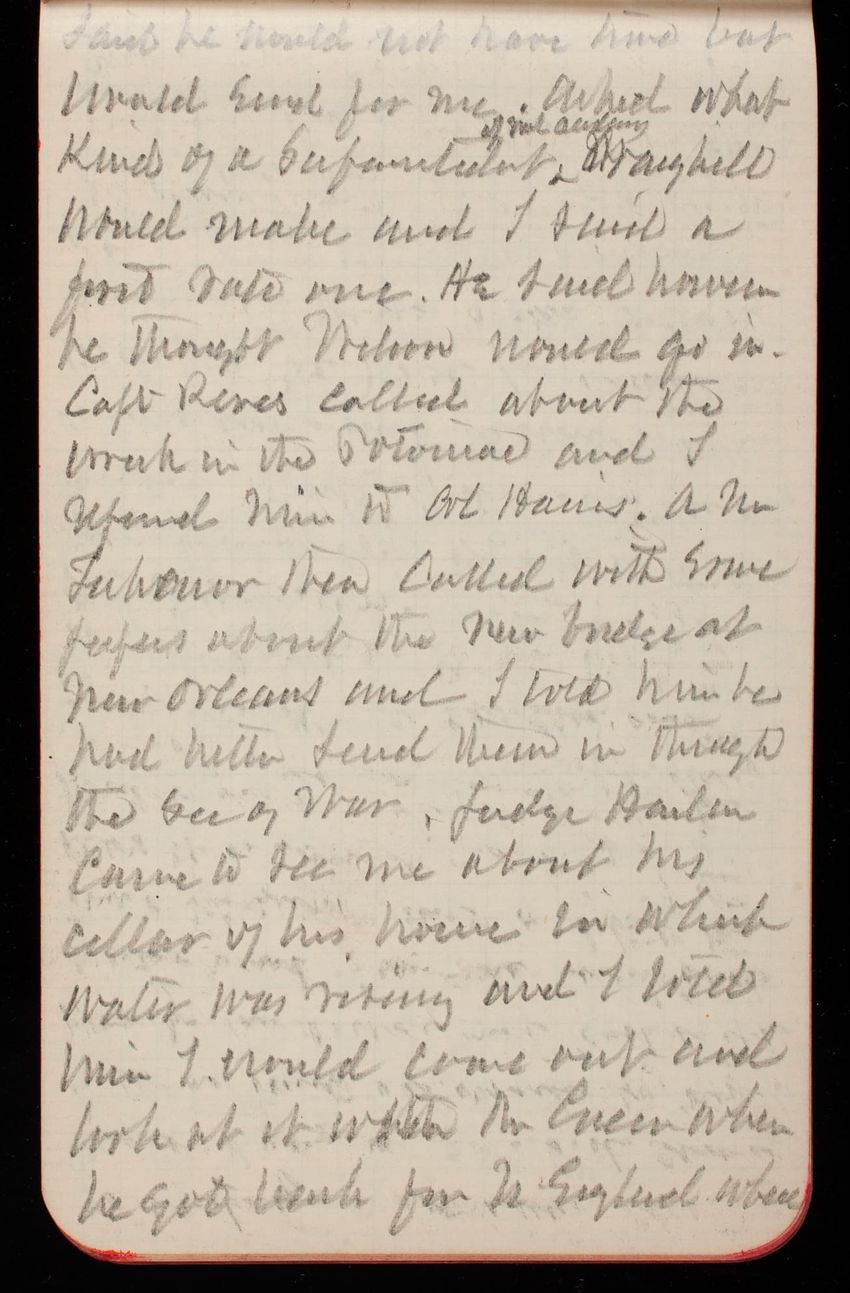 Said he would not have time but
would send for me. Asked what
of mil academy
Kind of a Superintendent
would make and I said a
first rate one. He said however
he thought Wilson would go in.
Capt Reves called about the
work in the Potomac and I
refered him to Col Hains. A Mr
then called with some
papers about the new bridge at
New Orleans and I told him he
had better send them in through
the Sec of War. Judge Harlan
came to see me about his
cellar of his house in which
water was rising and I told
him I would come out and
look at it with Mr when
he got back from N England where